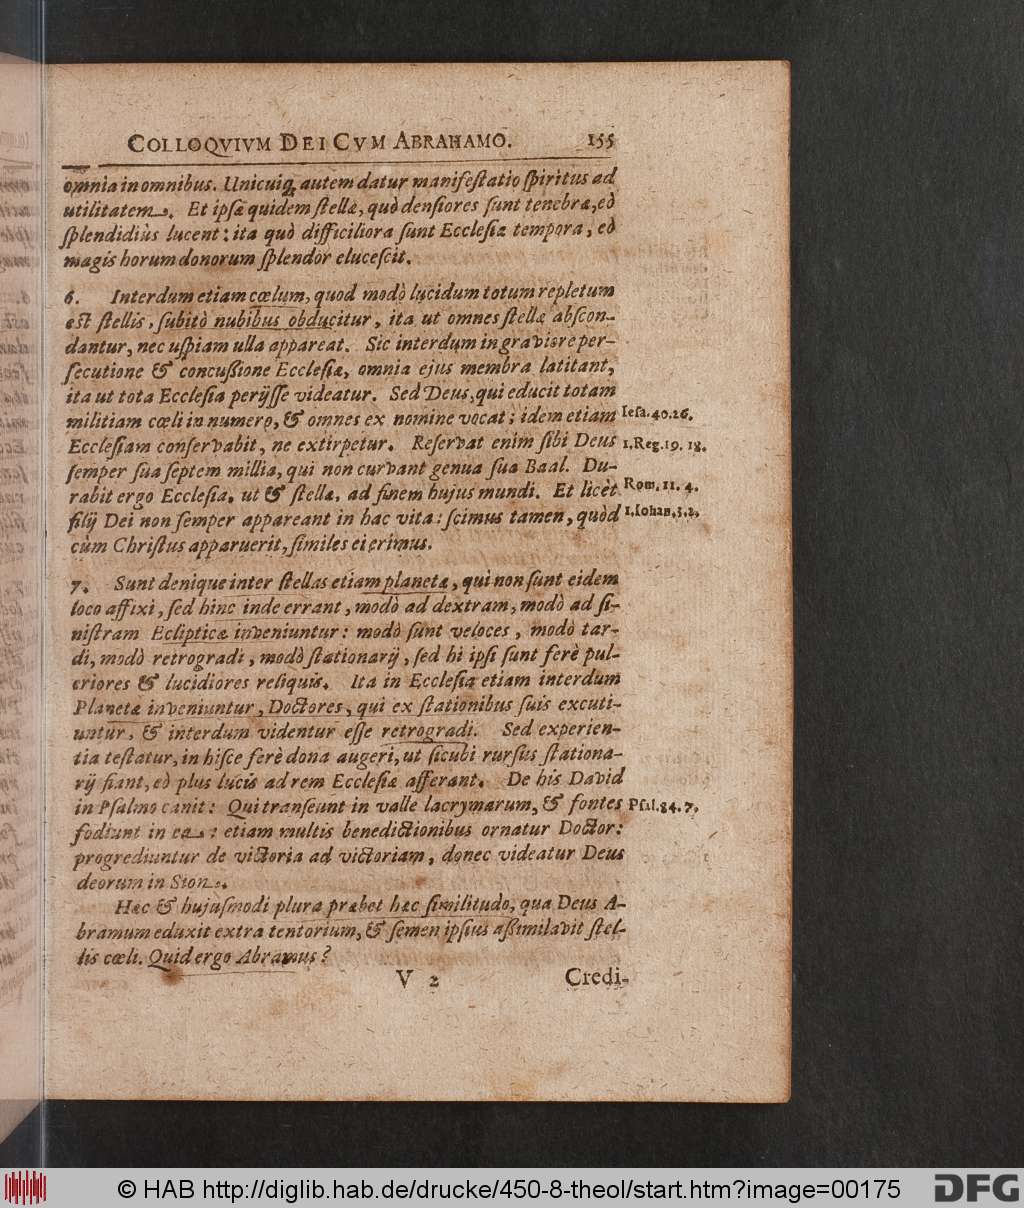 COLLOQVIVM DEI CVM ABRAHAMO. 155
omnia in omnibus. Unicuiq; autem datur manifeſtatio ſpiritus ad
utilitatem. Et ipſæ quidem ſtellæ, quò denſiores ſunt tenebræ, eò
ſplendidiùs lucent: ita quò difficiliora ſunt Eccleſiæ tempora, eò
magis horum donorum ſplendor eluceſcit.
6. Interdum etiam cœlum, quod modò lucidum totum repletum
est ſtellis, ſubitò nubibus obducitur, ita ut omnes ſtellæ abſcon-
dantur, nec uſpiam ulla appareat. Sic interdum in graviore per-
ſecutione & concuſsione Eccleſiæ, omnia ejus membra latitant,
ita ut tota Eccleſia perijſſe videatur. Sed Deus, qui educit totam
militiam cœli in numero, & omnes ex nomine vocat; idem etiam Ieſa. 40. 26.
Eccleſiam conſervabit, ne extirpetur. Reſervat enim ſibi Deus 1. Reg. 19. 18.
ſemper ſua ſeptem millia, qui non curvant genua ſua Baal. Du-
rabit ergo Eccleſia, ut & ſtellæ, ad finem hujus mundi. Et licèt Rom. 11. 4.
filij Dei non ſemper appareant in hac vita: ſcimus tamen, quòd 1. Iohan. 3. 2.
cùm Chriſtus apparuerit, ſimiles ei erimus.
7. Sunt denique inter ſtellas etiam planetæ, qui non ſunt eidem
loco affixi, ſed hinc inde errant, modò ad dextram, modò ad ſi-
niſtram Eclipticæ inveniuntur: modò ſunt veloces, modò tar-
di, modò retrogradi, modò ſtationarij, ſed hi ipſi ſunt ferè pul-
criores & lucidiores reliquis. Ita in Eccleſia etiam interdum
Planetæ inveniuntur, Doctores, qui ex ſtationibus ſuis excuti-
untur, & interdum videntur eſſe retrogradi. Sed experien-
tia teſtatur, in hiſce ferè dona augeri, ut ſicubi rurſus ſtationa-
rij fiant, eò plus lucis ad rem Eccleſiæ afferant. De his David
in Pſalmo canit: Qui tranſeunt in valle lacrymarum, & fontes Pſal. 84. 7.
fodiunt in ea: etiam multis benedictionibus ornatur Doctor:
progrediuntur de victoria ad victoriam, donec videatur Deus
deorum in Sion.
Hæc & hujuſmodi plura præbet hæc ſimilitudo, qua Deus A-
bramum eduxit extra tentorium, & ſemen ipſius aſsimilavit ſtel-
lis cœli. Quid ergo Abramus?
V 2 Credi-
© HAB http://diglib.hab.de/drucke/450-8-theol/start.htm?image=00175 DFG